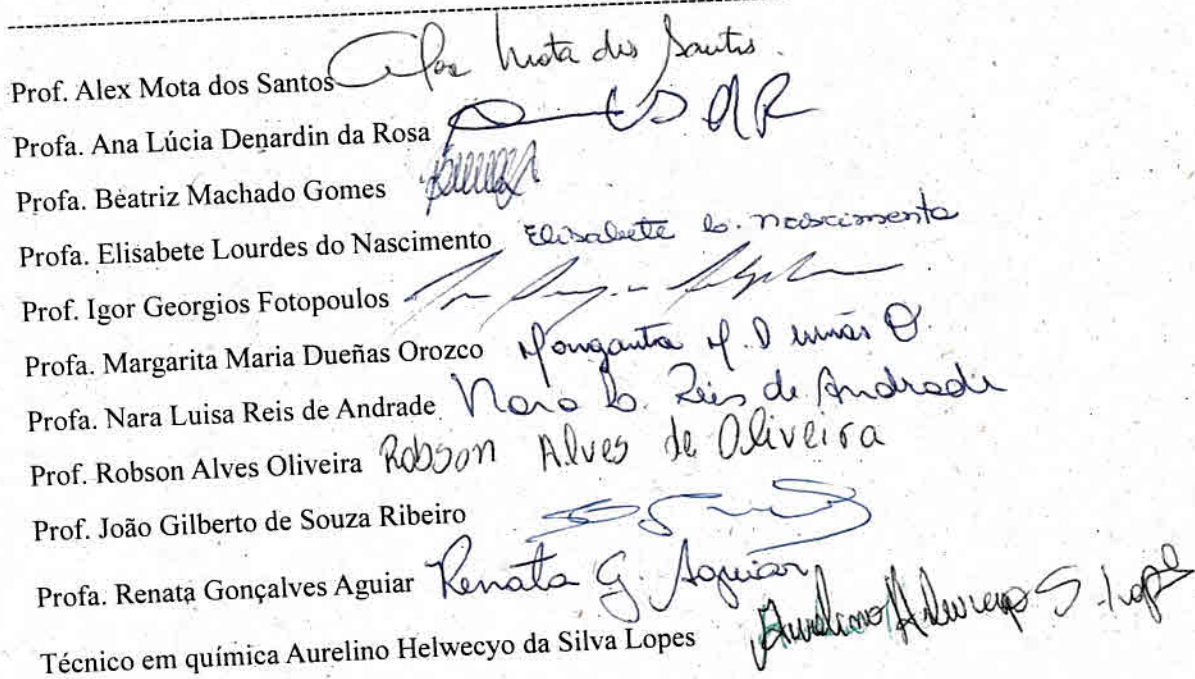 Prof. Alex Mota dos Santos Alex Mota dos Santos.
Profa. Ana Lúcia Denardin da Rosa
Profa. Beatriz Machado Gomes
Profa. Elisabete Lourdes do Nascimento Elisabete L. Nascimento
Prof. Igor Georgios Fotopoulos
Profa. Margarita Maria Dueñas Orozco Margarita M. Dueñas O.
Profa. Nara Luisa Reis de Andrade Nara L. Reis de Andrade
Prof. Robson Alves Oliveira Robson Alves de Oliveira
Prof. João Gilberto de Souza Ribeiro
Profa. Renata Gonçalves Aguiar Renata G. Aguiar
Técnico em química Aurelino Helwecyo da Silva Lopes Aurelino Helwecyo S. Lopes